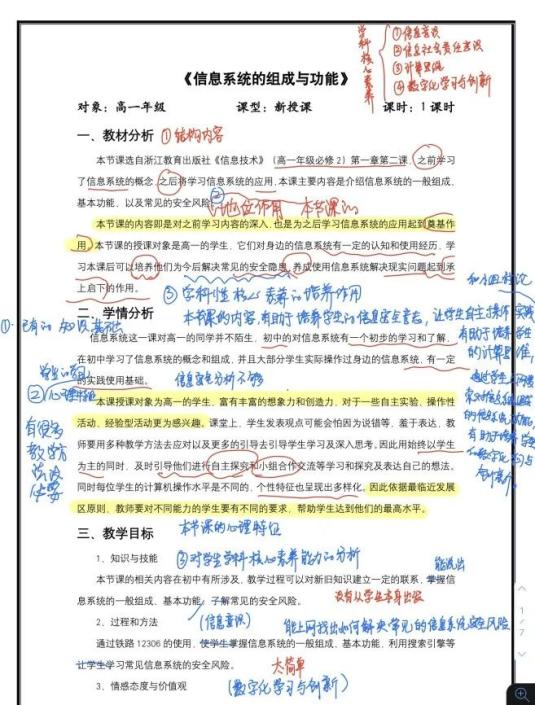 学科核心素养
①信息意识
②信息社会责任意识
③计算思维
④数字化学习与创新
《信息系统的组成与功能》
对象：高一年级 课型：新授课 课时：1课时
一、教材分析 ①结构内容
本节课选自浙江教育出版社《信息技术》（高一年级必修2）第一章第二课，之前学习
了信息系统的概念，之后将学习信息系统的应用，本课主要内容是介绍信息系统的一般组成、
基本功能、以及常见的安全风险。
②地位作用 本节课的
本节课的内容即是对之前学习内容的深入，也是为之后学习信息系统的应用起到奠基作
用。本节课的授课对象是高一的学生，它们对身边的信息系统有一定的认知和使用经历，学
习本课后可以培养他们为今后解决常见的安全隐患，养成使用信息系统解决现实问题起到承
上启下的作用。
③学科性核心素养的培养作用
二、学情分析
本节课的内容，有助于培养学生的信息安全意志，让学生自主操作
①已有的知识基础
信息系统这一课对高一的同学并不陌生，初中的对信息系统有一个初步的学习和了解，
在初中学习了信息系统的概念和组成，并且大部分学生实际操作过身边的信息系统，有一定
的实践使用基础。
②心理特征
有很多教学方法没必要
本节课授课对象为高一的学生，富有丰富的想象力和创造力，对于一些自主实验、操作性
活动、经验型活动更为感兴趣。课堂上，学生发表观点可能会怕因为说错等，羞于表达，教
师要用多种教学方法去应对以及更多的引导去引导学生学习及深入思考。因此用始终以学生
为主的同时，及时引导他们进行自主探究和小组合作交流等学习和探究及表达自己的想法。
同时每位学生的计算机操作水平是不同的，个性特征也呈现出多样化。因此依据最临近发展
区原则，教师要对不同能力的学生要有不同的要求，帮助学生达到他们的最高水平。
和小组讨论
有助于培养学生的计算思维，
本节课的心理特征
三、教学目标
③对学生学科核心素养能力的分析
1、知识与技能
能说出
本节课的相关内容在初中有所涉及，教学过程可以对新旧知识建立一定的联系，掌握信
息系统的一般组成、基本功能，了解常见的安全风险。
没有从学生本身出发
2、过程和方法 （信息意识）
能上网找出如何解决常见的信息系统安全风险
通过铁路 12306 的使用，使学生掌握信息系统的一般组成、基本功能，利用搜索引擎等
让学生学习常见信息系统的安全风险。
太简单
3、情感态度与价值观 （数字化学习与创新）
1
/
7